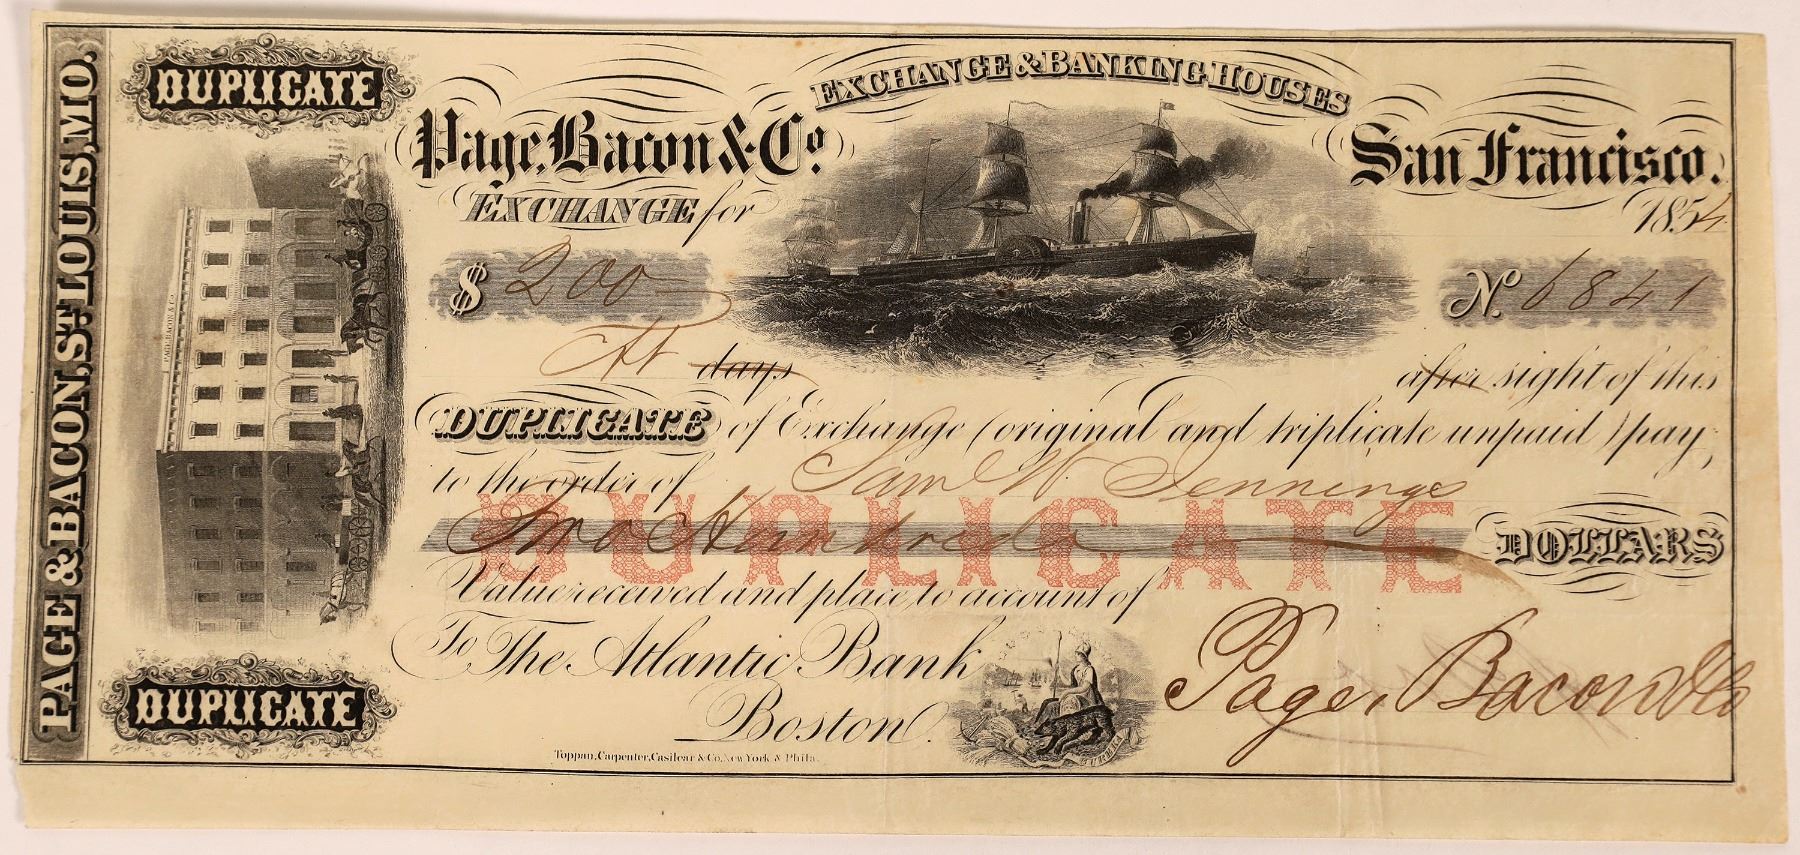 PAGE & BACON, ST. LOUIS, MO.
DUPLICATE
PAGE, BACON & Co
DUPLICATE
EXCHANGE & BANKING HOUSES
Page, Bacon & Co. San Francisco.
EXCHANGE for 1854
$ 200 No. 6841
At days after sight of this
DUPLICATE of Exchange (original and triplicate unpaid) pay,
to the order of Sam W Jennings
DUPLICATE
Two Hundred DOLLARS
Value received and place to account of
To The Atlantic Bank
Boston.
Page, Bacon & Co
EUREKA
Toppan, Carpenter, Casilear & Co. New York & Phila.